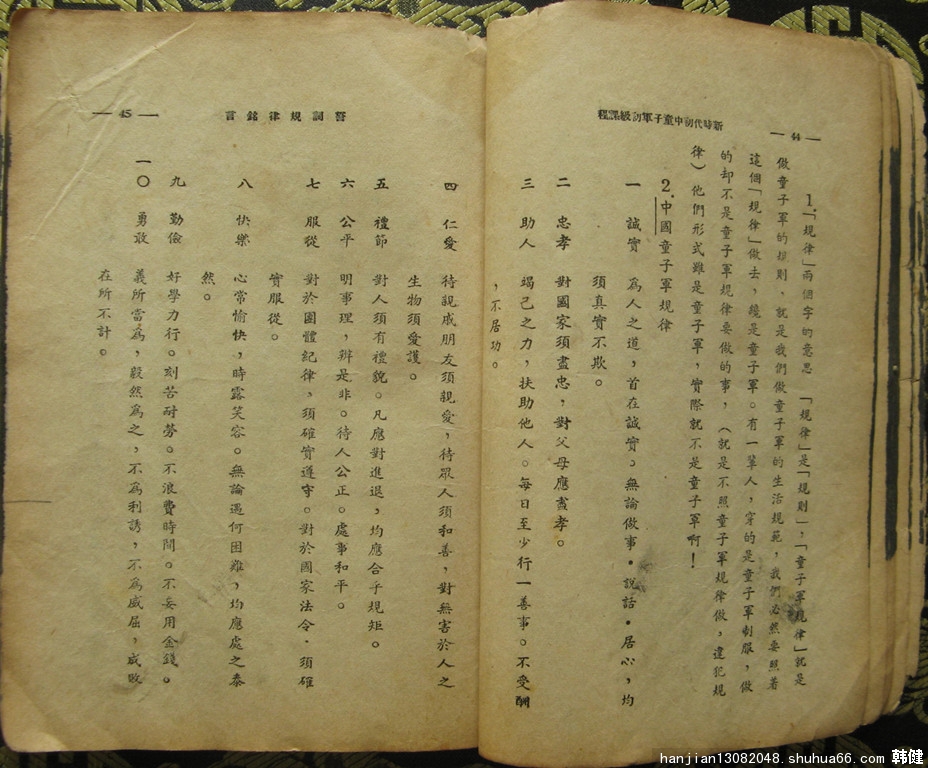 新時代初中童子軍初級課程
— 44 —
1.「規律」兩個字的意思　「規律」是「規則」，「童子軍規律」就是
做童子軍的規則，就是我們做童子軍的生活規範，我們必然要照着
這個「規律」做去，纔是童子軍。有一輩人，穿的是童子軍制服，做
的却不是童子軍規律要做的事，（就是不照童子軍規律做，違犯規
律）他們形式雖是童子軍，實際就不是童子軍啊！
2.中國童子軍規律
一　誠實　為人之道，首在誠實。無論做事·說話·居心，均
須真實不欺。
二　忠孝　對國家須盡忠，對父母應盡孝。
三　助人　竭己之力，扶助他人。每日至少行一善事。不受酬
，不居功。
誓詞規律銘言
— 45 —
四　仁愛　待親戚朋友須親愛，待眾人須和善，對無害於人之
生物須愛護。
五　禮節　對人須有禮貌。凡應對進退，均應合乎規矩。
六　公平　明事理，辨是非。待人公正。處事和平。
七　服從　對於團體紀律，須確實遵守。對於國家法令·須確
實服從。
八　快樂　心常愉快，時露笑容。無論遇何困難，均應處之泰
然。
九　勤儉　好學力行。刻苦耐勞。不浪費時間。不妄用金錢。
一〇　勇敢　義所當為，毅然為之，不為利誘，不為威屈，成敗
在所不計。
hanjian13082048.shuhua66.com 韩健